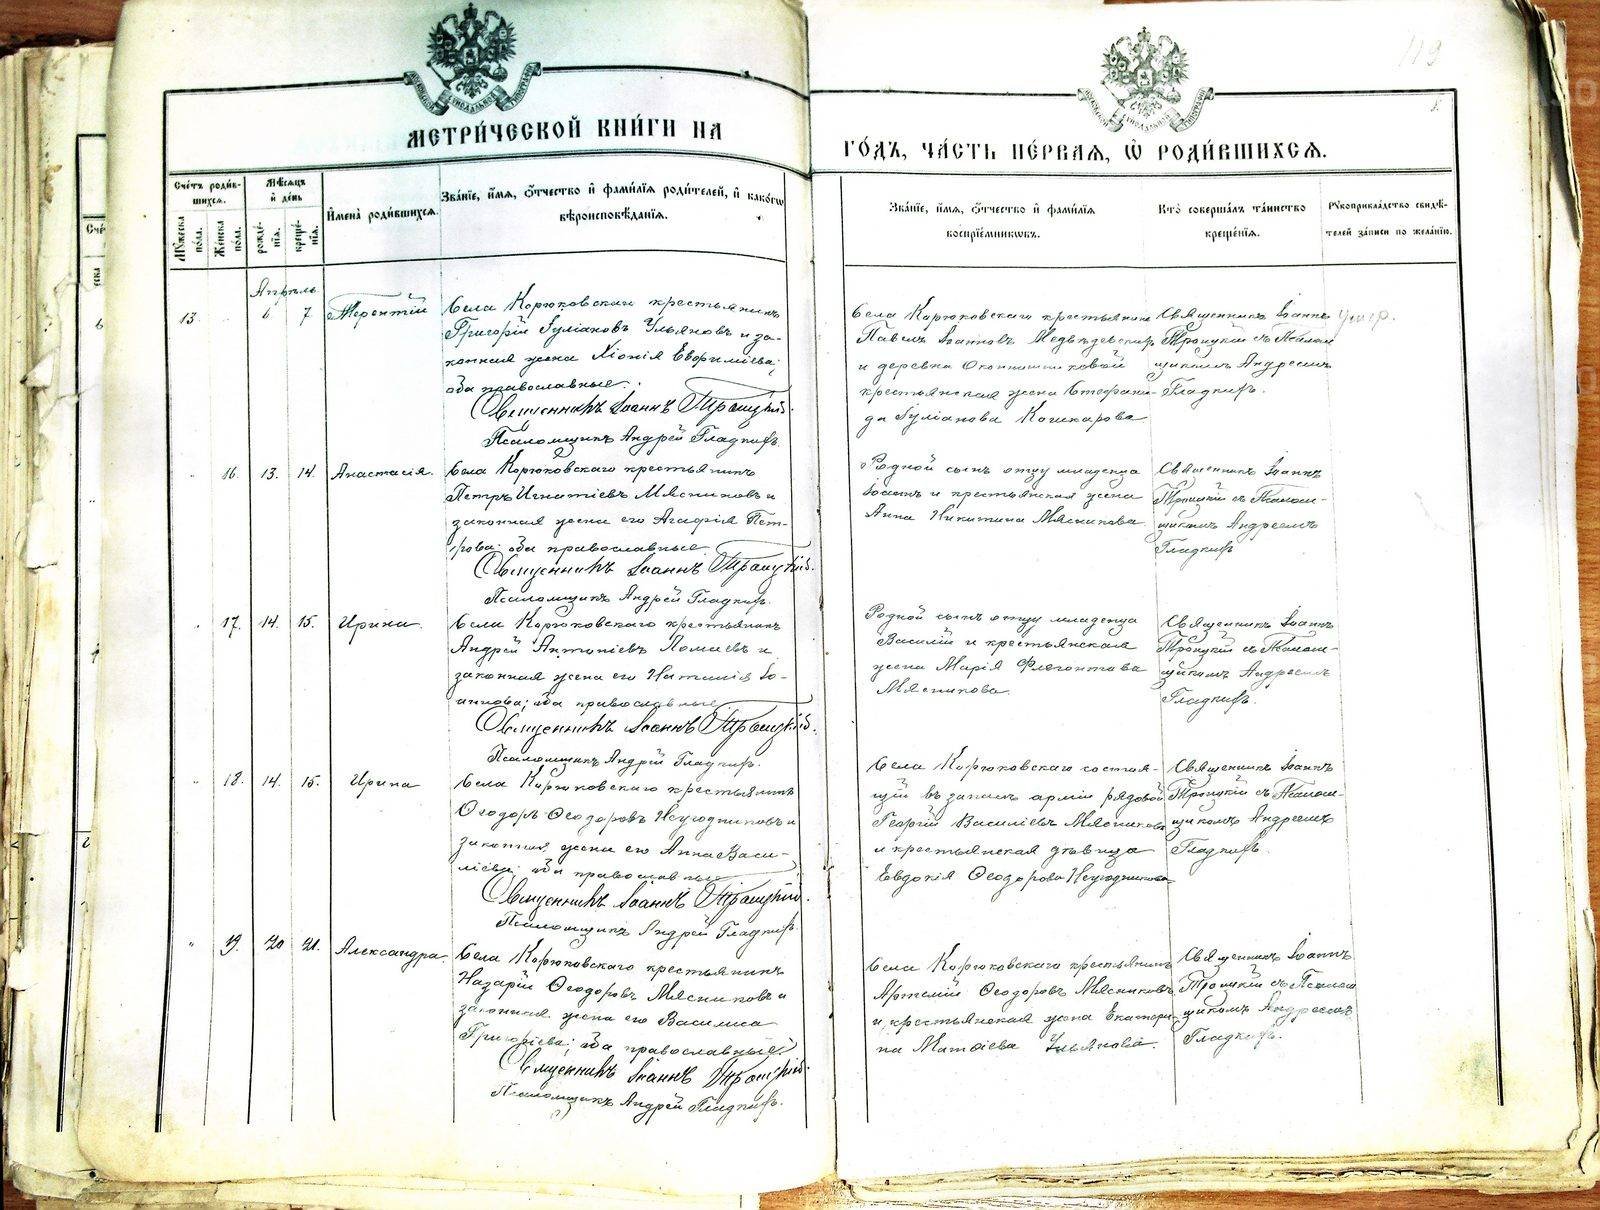 119
МЕТРИ́ЧЕСКОЙ КНИ́ГИ НА
ГО́ДЪ, ЧА́СТЬ ПЕ́РВАЯ, Ѡ РОДИ́ВШИХСЯ.
Сче́тъ роди́в-
шихся.
Му́жеска по́ла.
Же́нска по́ла.
Мѣ́сяцъ
и҆ де́нь
рожде́-
нїя.
креще́-
нїя.
И҆мена̀ роди́вшихся.
Зва́нїе, и҆́мя, ѻ҆́тчество и҆ фами́лїя роди́телей, и҆ како́гѡ
вѣроисповѣ́данїя.
Зва́нїе, и҆́мя, ѻ҆́тчество и҆ фами́лїя
воспрїе́мниковъ.
Кто̀ соверша́лъ та́инство
креще́нїя.
Рꙋкоприкла́дство свидѣ́-
телей за́писи по жела́нїю.
Апрѣль
13. 6 7 Терентій
Села Корюковскаго крестьянинъ
Григорій Іуліановъ Ульяновъ и за-
конная жена Хіонія Евфиміева;
оба православные.
Священникъ Іоаннъ Троицкій.
Псаломщикъ Андрей Гладкихъ.
Села Корюковскаго крестьянинъ
Павелъ Іоанновъ Медвѣдевскихъ
и деревни
крестьянская жена Стефани-
да Іуліанова Кошкарова
Священникъ Іоаннъ
Троицкій съ Псалом-
щикомъ Андреемъ
Гладкихъ.
Умер.
" 16. 13. 14. Анастасія.
Села Корюковскаго крестьянинъ
Петръ Игнатіевъ Мясниковъ и
законная жена его Агафія Пет-
рова; оба православные.
Священникъ Іоаннъ Троицкій.
Псаломщикъ Андрей Гладкихъ.
Родной сынъ отцу младенца
Іоаннъ и крестьянская жена
Анна Никитина Мясникова
Священникъ Іоаннъ
Троицкій съ Псалом-
щикомъ Андреемъ
Гладкихъ
" 17. 14. 15. Ирина.
Села Корюковскаго крестьянинъ
Андрей Антоніевъ Ломаевъ и
законная жена его Наталія Іо-
аннова; оба православные.
Священникъ Іоаннъ Троицкій.
Псаломщикъ Андрей Гладкихъ.
Родной сынъ отцу младенца
Василій и крестьянская
жена Марія Флегонтова
Мясникова.
Священникъ Іоаннъ
Троицкій съ Псалом-
щикомъ Андреемъ
Гладкихъ.
" 18. 14. 15. Ирина
Села Корюковскаго крестьянинъ
Ѳеодоръ Ѳеодоровъ Неугодниковъ и
законная жена его Анна Васи-
ліева; оба православные
Священникъ Іоаннъ Троицкій.
Псаломщикъ Андрей Гладкихъ.
Села Корюковскаго состоя-
щій въ запасѣ арміи рядовой
Георгій Василіевъ Мясниковъ
и крестьянская дѣвица
Евдокія Ѳеодорова Неугодникова
Священникъ Іоаннъ
Троицкій съ Псалом-
щикомъ Андреемъ
Гладкихъ.
" 19. 20 21. Александра
Села Корюковскаго крестьянинъ
Назарій Ѳеодоровъ Мясниковъ и
законная жена его Василиса
Григоріева; оба православные.
Священникъ Іоаннъ Троицкій.
Псаломщикъ Андрей Гладкихъ.
Села Корюковскаго крестьянинъ
Артемій Ѳеодоровъ Мясниковъ
и крестьянская жена Екатери-
на Матѳіева Ульянова.
Священникъ Іоаннъ
Троицкій съ Псалом-
щикомъ Андреемъ
Гладкихъ.